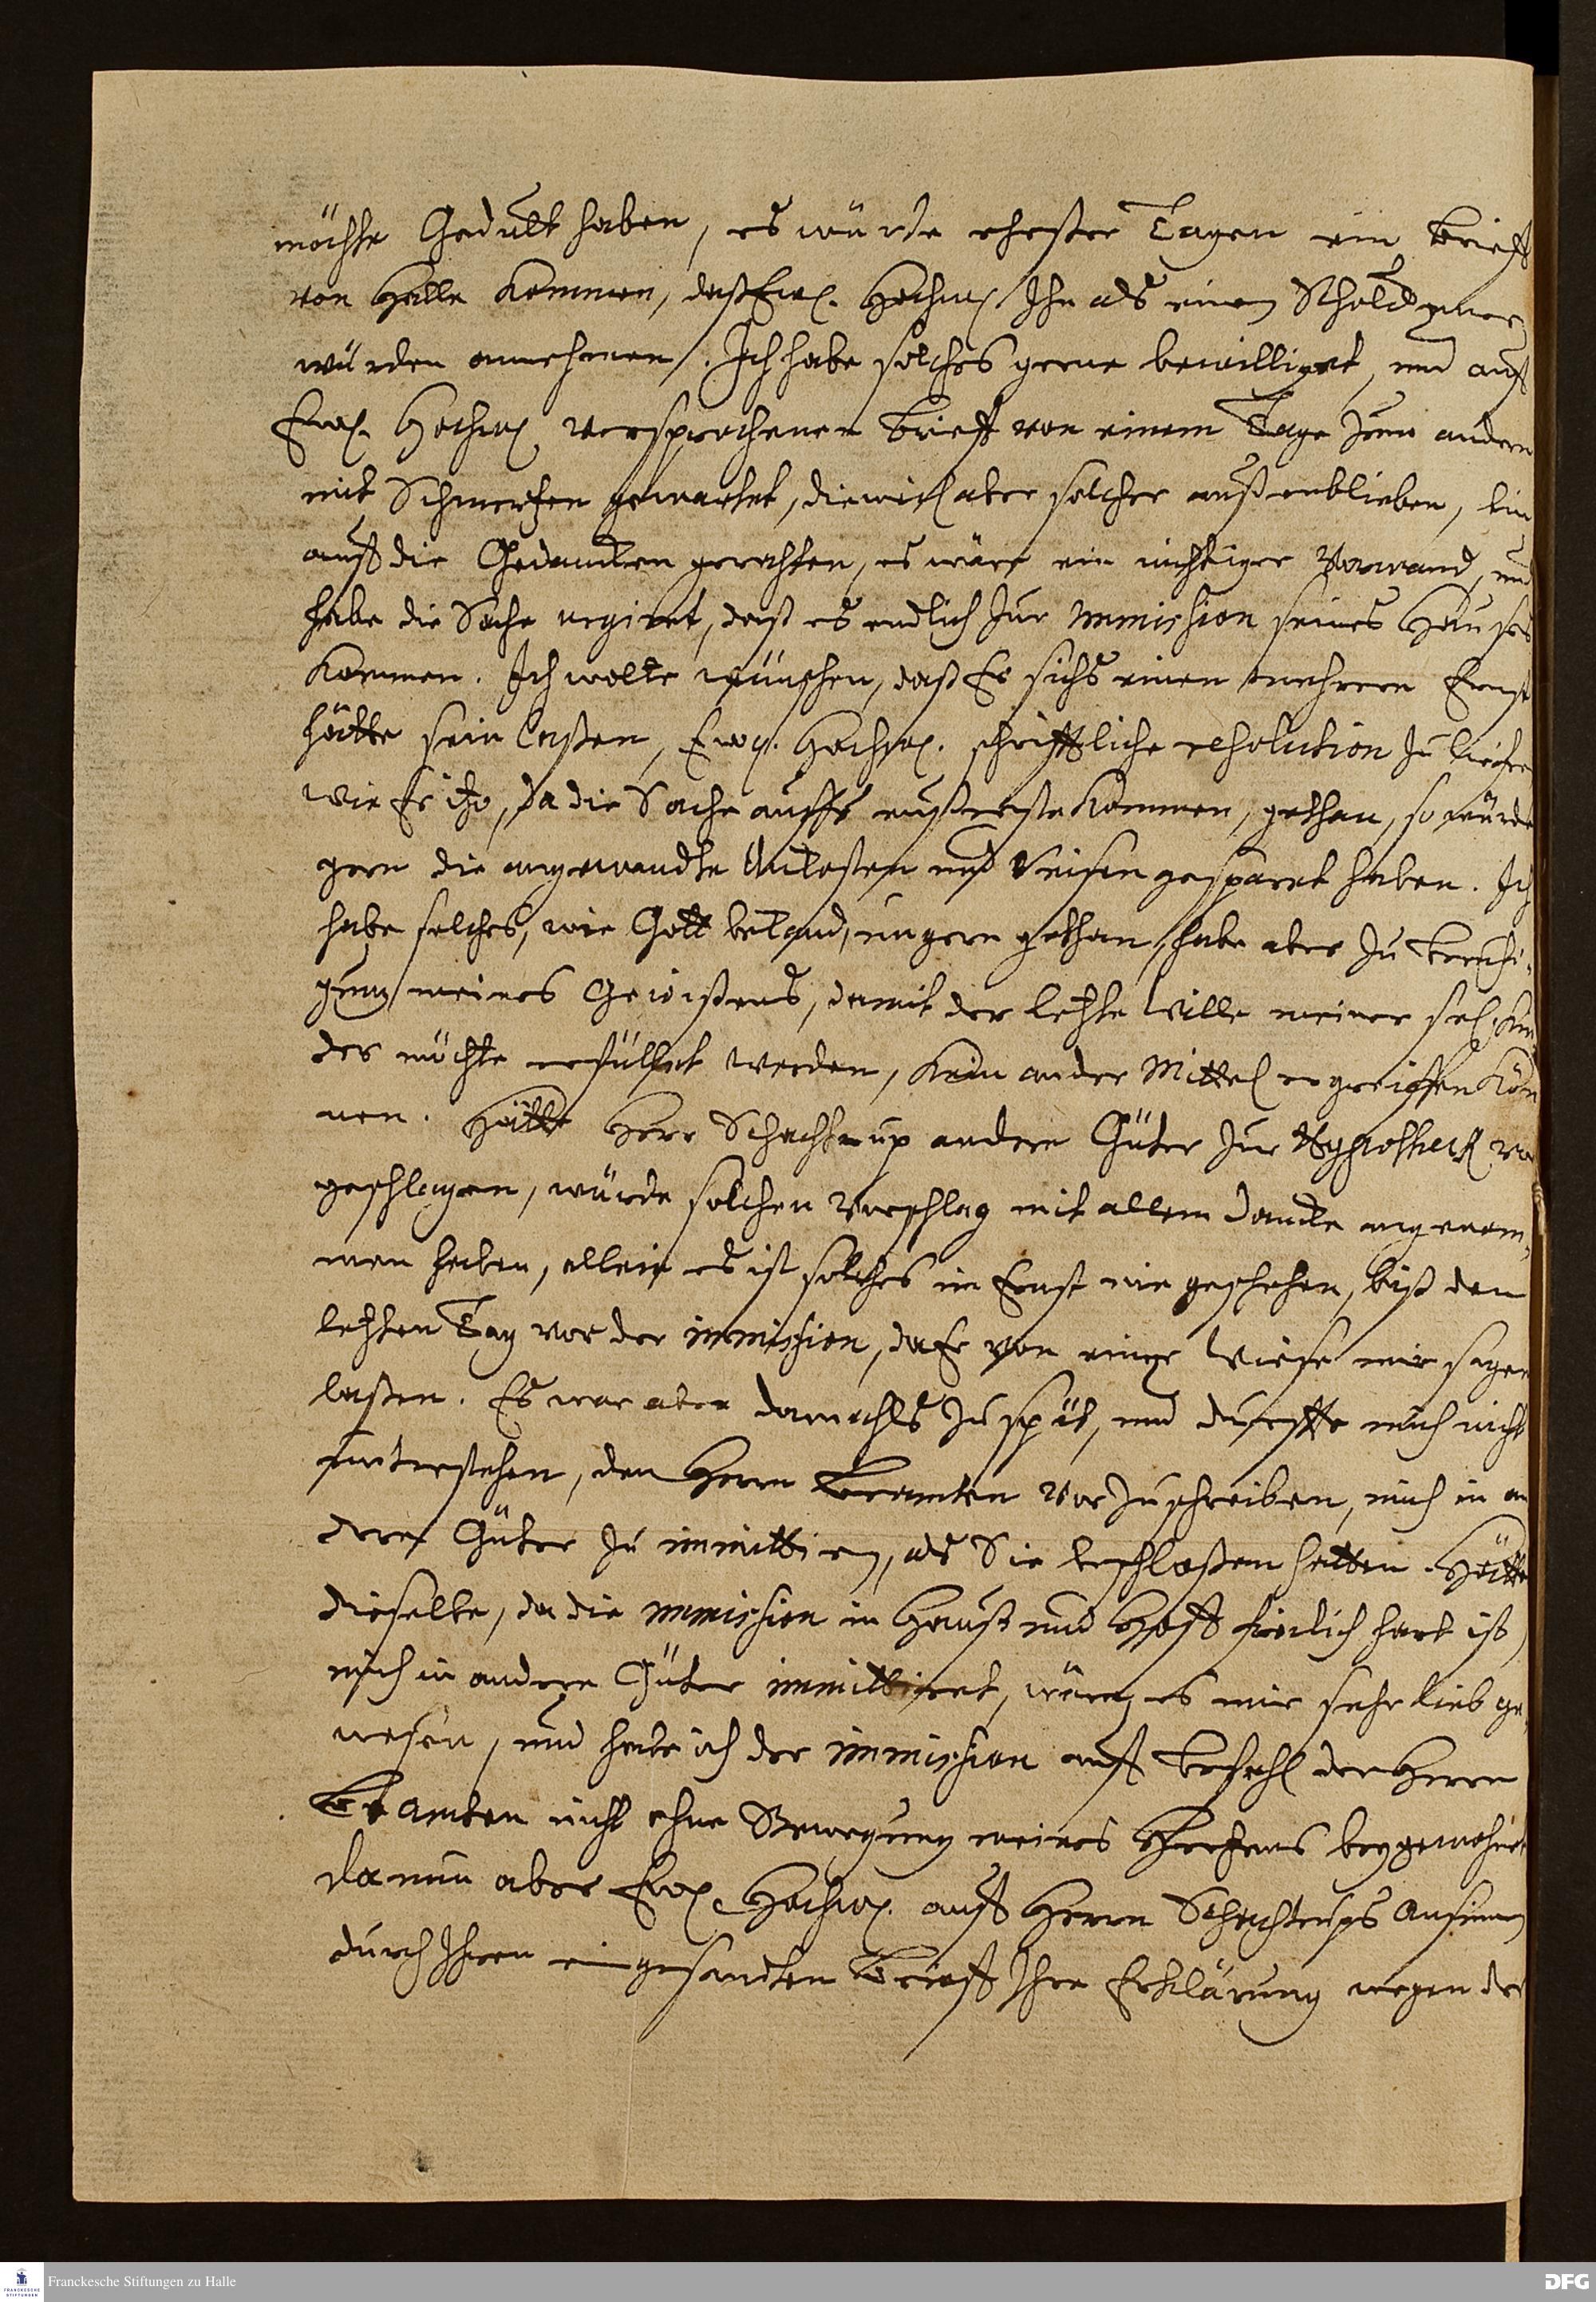 möchte Gedult haben, es würde ehester Tagen ein brieff
von Halle kommen, daß Ew. Hochw. Ihn als einen Schuldener
würden annehmen. Ich habe solches gerne bewilliget, und auff
Ew. Hochw. versprochenen brieff von einem Tage zum andern
mit Schmerzen gewartet, dieweil aber solcher außenblieben, bin
auff die Gedancken gerathen, es wäre ein nichtiger Vorwand, und
habe die Sache urgiret, daß es endlich zur immission seines Hauses
kommen. Ich wolte wünschen, daß Er sichs einen mehrern Ernst
hätte sein laßen, Ew. Hochw. schrifftliche resolution zu liefern
wie Er itzo, da die Sache auffs eußerste kommen, gethan, so würde
gern die angewandte Unkosten und Reisen gesparet haben. Ich
habe solches, wie Gott bekand, ungern gethan, habe aber zu beruhi-
gung meines Gewißens, damit der letzte Wille meines sel. Kin
des möchte erfüllet werden, kein ander Mittel ergreiffen kön
nen. Hätte Herr Schachtrup andere Güter zur Hypotheck vor
geschlagen, würde solchen Vorschlag mit allem Dancke angenom-
men haben, allein es ist solches im Ernst nie geschehen, biß den
letzten Tag vor der immission, da Er von einer Wiese mir sagen
laßen. Es war aber damahls zu spät, und durffte mich nicht
unterstehen, den Herrn Beamten vorzuschreiben, mich in an
dere Güter zu immittiren, als Sie beschloßen hatten. Hätten
dieselbe, da die immission in Hauß und Hoff freilich hart ist,
mich in andere Güter immittiret, wäre es mir sehr lieb ge-
wesen, und habe ich der immission auff Befehl der Herrn
Beamten nicht ohne Bewegung meines Hertzens beygewohnet
da nun aber Ew. Hochw. auff Herrn Schachtrups Ansinnen
durch Ihren eingesandten Brieff Ihre Erklärung wegen der
Franckesche Stiftungen zu Halle
DFG